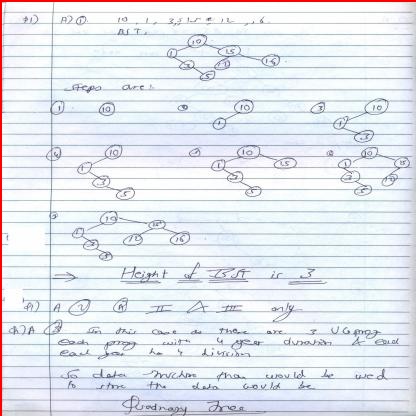 Q1) A) ① 10, 1, 3, 5, 15, 12, 16.
BST.
10
1 15
3 12 16
5
steps are:
① 10 ② 10 ③ 10
1 1
3
④ 10 ⑤ 10 ⑥ 10
1 1 15 1 15
3 3 3 12
5 5 5
⑦ 10
1 15
3 12 16
5
→ Height of BST is 3
Q1) A ② (A) II & III only
Q1) A ③ In this case as there are 3 UG prog
each prog with 4 year duration & each
each year has 4 division
So data structure that would be used
to store the data would be
Quadnary Tree